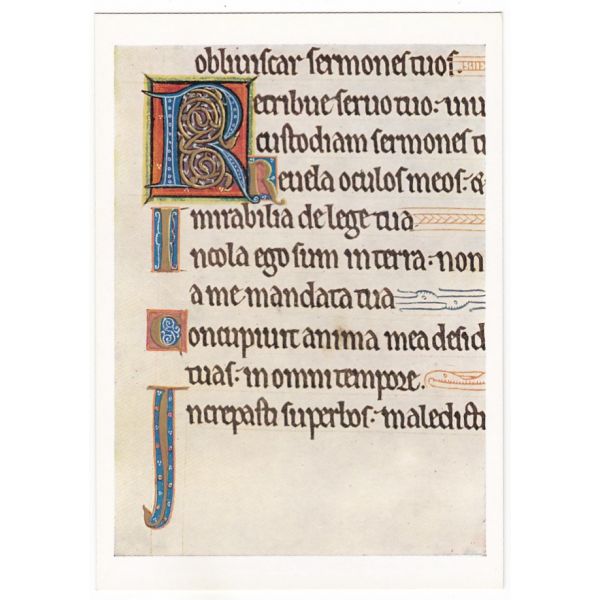 obliuiscar sermones tuos.
Retribue seruo tuo: uiu
custodiam sermones t
Reuela oculos meos: &
mirabilia de lege tua
Incola ego sum in terra: non
a me mandata tua
Concupiuit anima mea desid
tuas: in omni tempore.
Increpasti superbos: maledicti